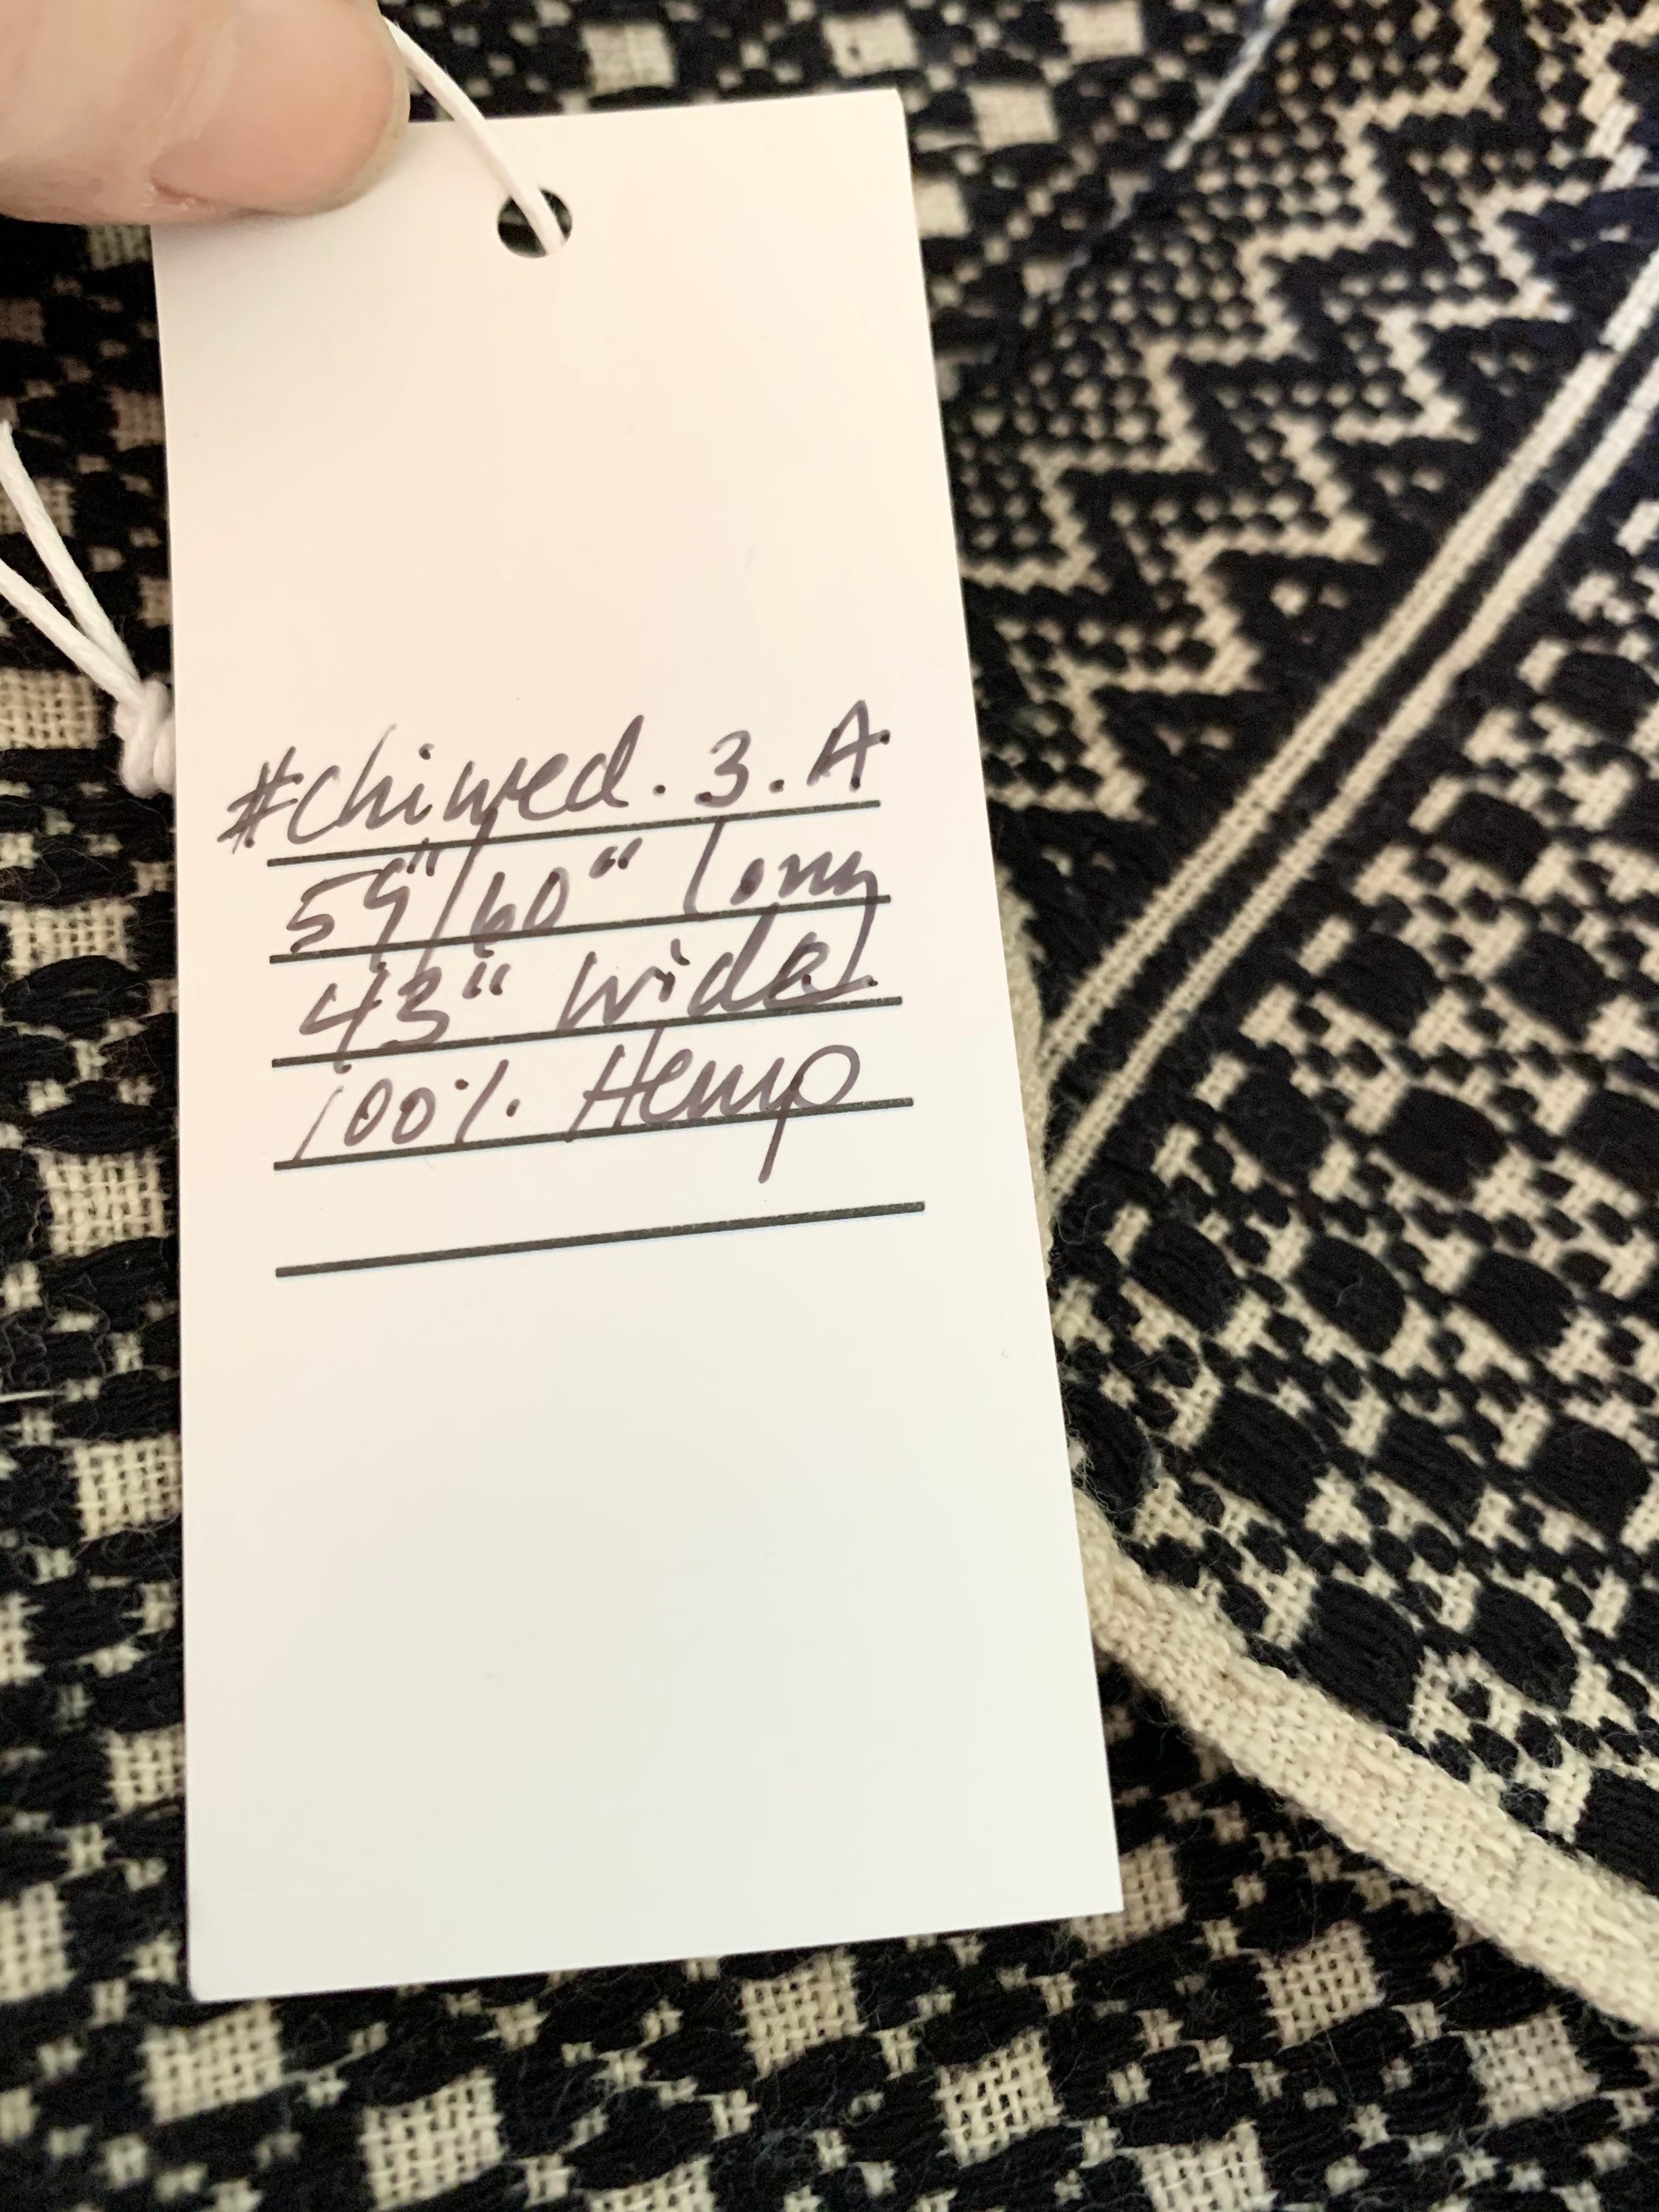 #chiwed. 3. A
59"/60" long
43" wide.
100%. Hemp